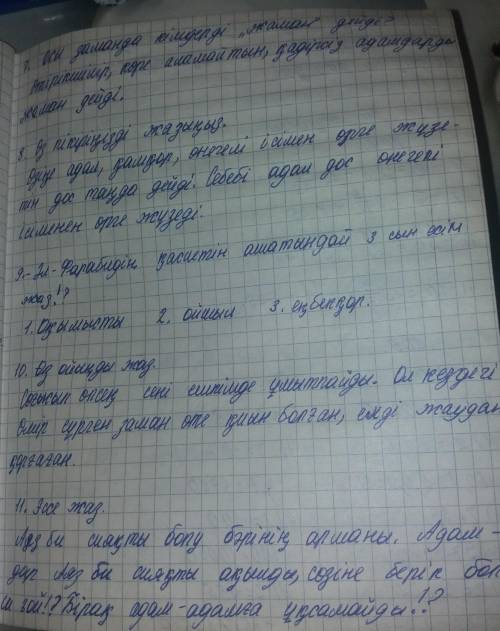 7. Осы заманда кімдерді „жаман" дейді?
Өтірікшілір, көре алмайтын, қадірсіз адамдарды
жаман дейді.
8. Өз пікіріңізді жазыңыз.
Өзіңе адал, қамқор, өнегелі ісімен өрге жүзе-
тін дос таңда дейді. Себебі адал дос өнегелі
ісіменен өрге жүзеді.
9.- Әл-Фарабидің қасиетін ашатындай 3 сын есім
жаз.!?
1. Оқымысты 2. ойшыл 3. еңбекқор.
10. Өз ойыңды жаз.
өлсең сені ұмытпайды. Ол кездегі
Өмір сүрген заман өте қиын болған, елді жаудан
қорғаған.
11. Эссе жаз.
Аяз би сияқты болу бәрінің арманы. Адам-
дар Аяз би сияқты ақылды, сөзіне берік бол
ғой!? Бірақ адам-адамға ұқсамайды!?